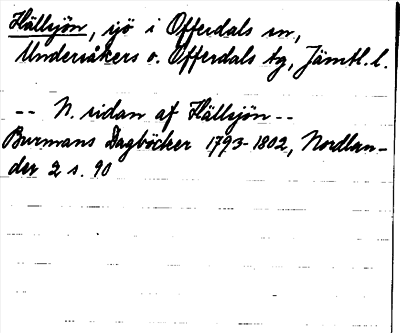 Hällsjön, sjö i Offerdals sn,
Undersåkers o. Offerdals tg, Jämtl. l.
-- N. sidan af Hällsjön --
Burmans Dagböcker 1793-1802, Nordlan-
der 2 s. 90